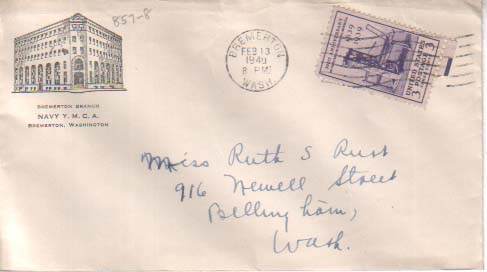 857-8
BREMERTON
FEB 13
1940
8 PM
WASH.
BREMERTON BRANCH
NAVY Y. M. C. A.
BREMERTON, WASHINGTON
3
UNITED STATES
POSTAGE
3
Miss Ruth S Rust
916 Newell Street
Bellingham,
Wash.